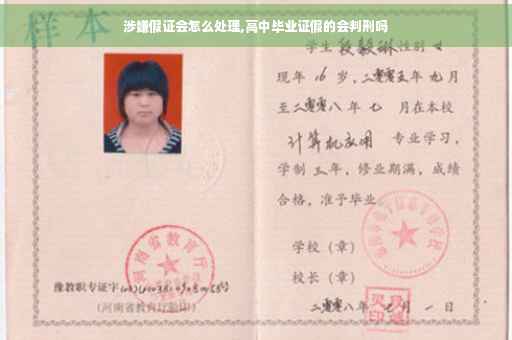 涉嫌假证会怎么处理,高中毕业证假的会判刑吗
样本
学生段毅琳性别女
现年16岁,二零零五年九月
至二零零八年七月在本校
计算机应用 专业学习,
学制三年,修业期满,成绩
合格,准予毕业
学校(章)
校长(章)
二零零八年 月一日
河南省教育厅
豫教职专证字
(河南省教育厅验印)